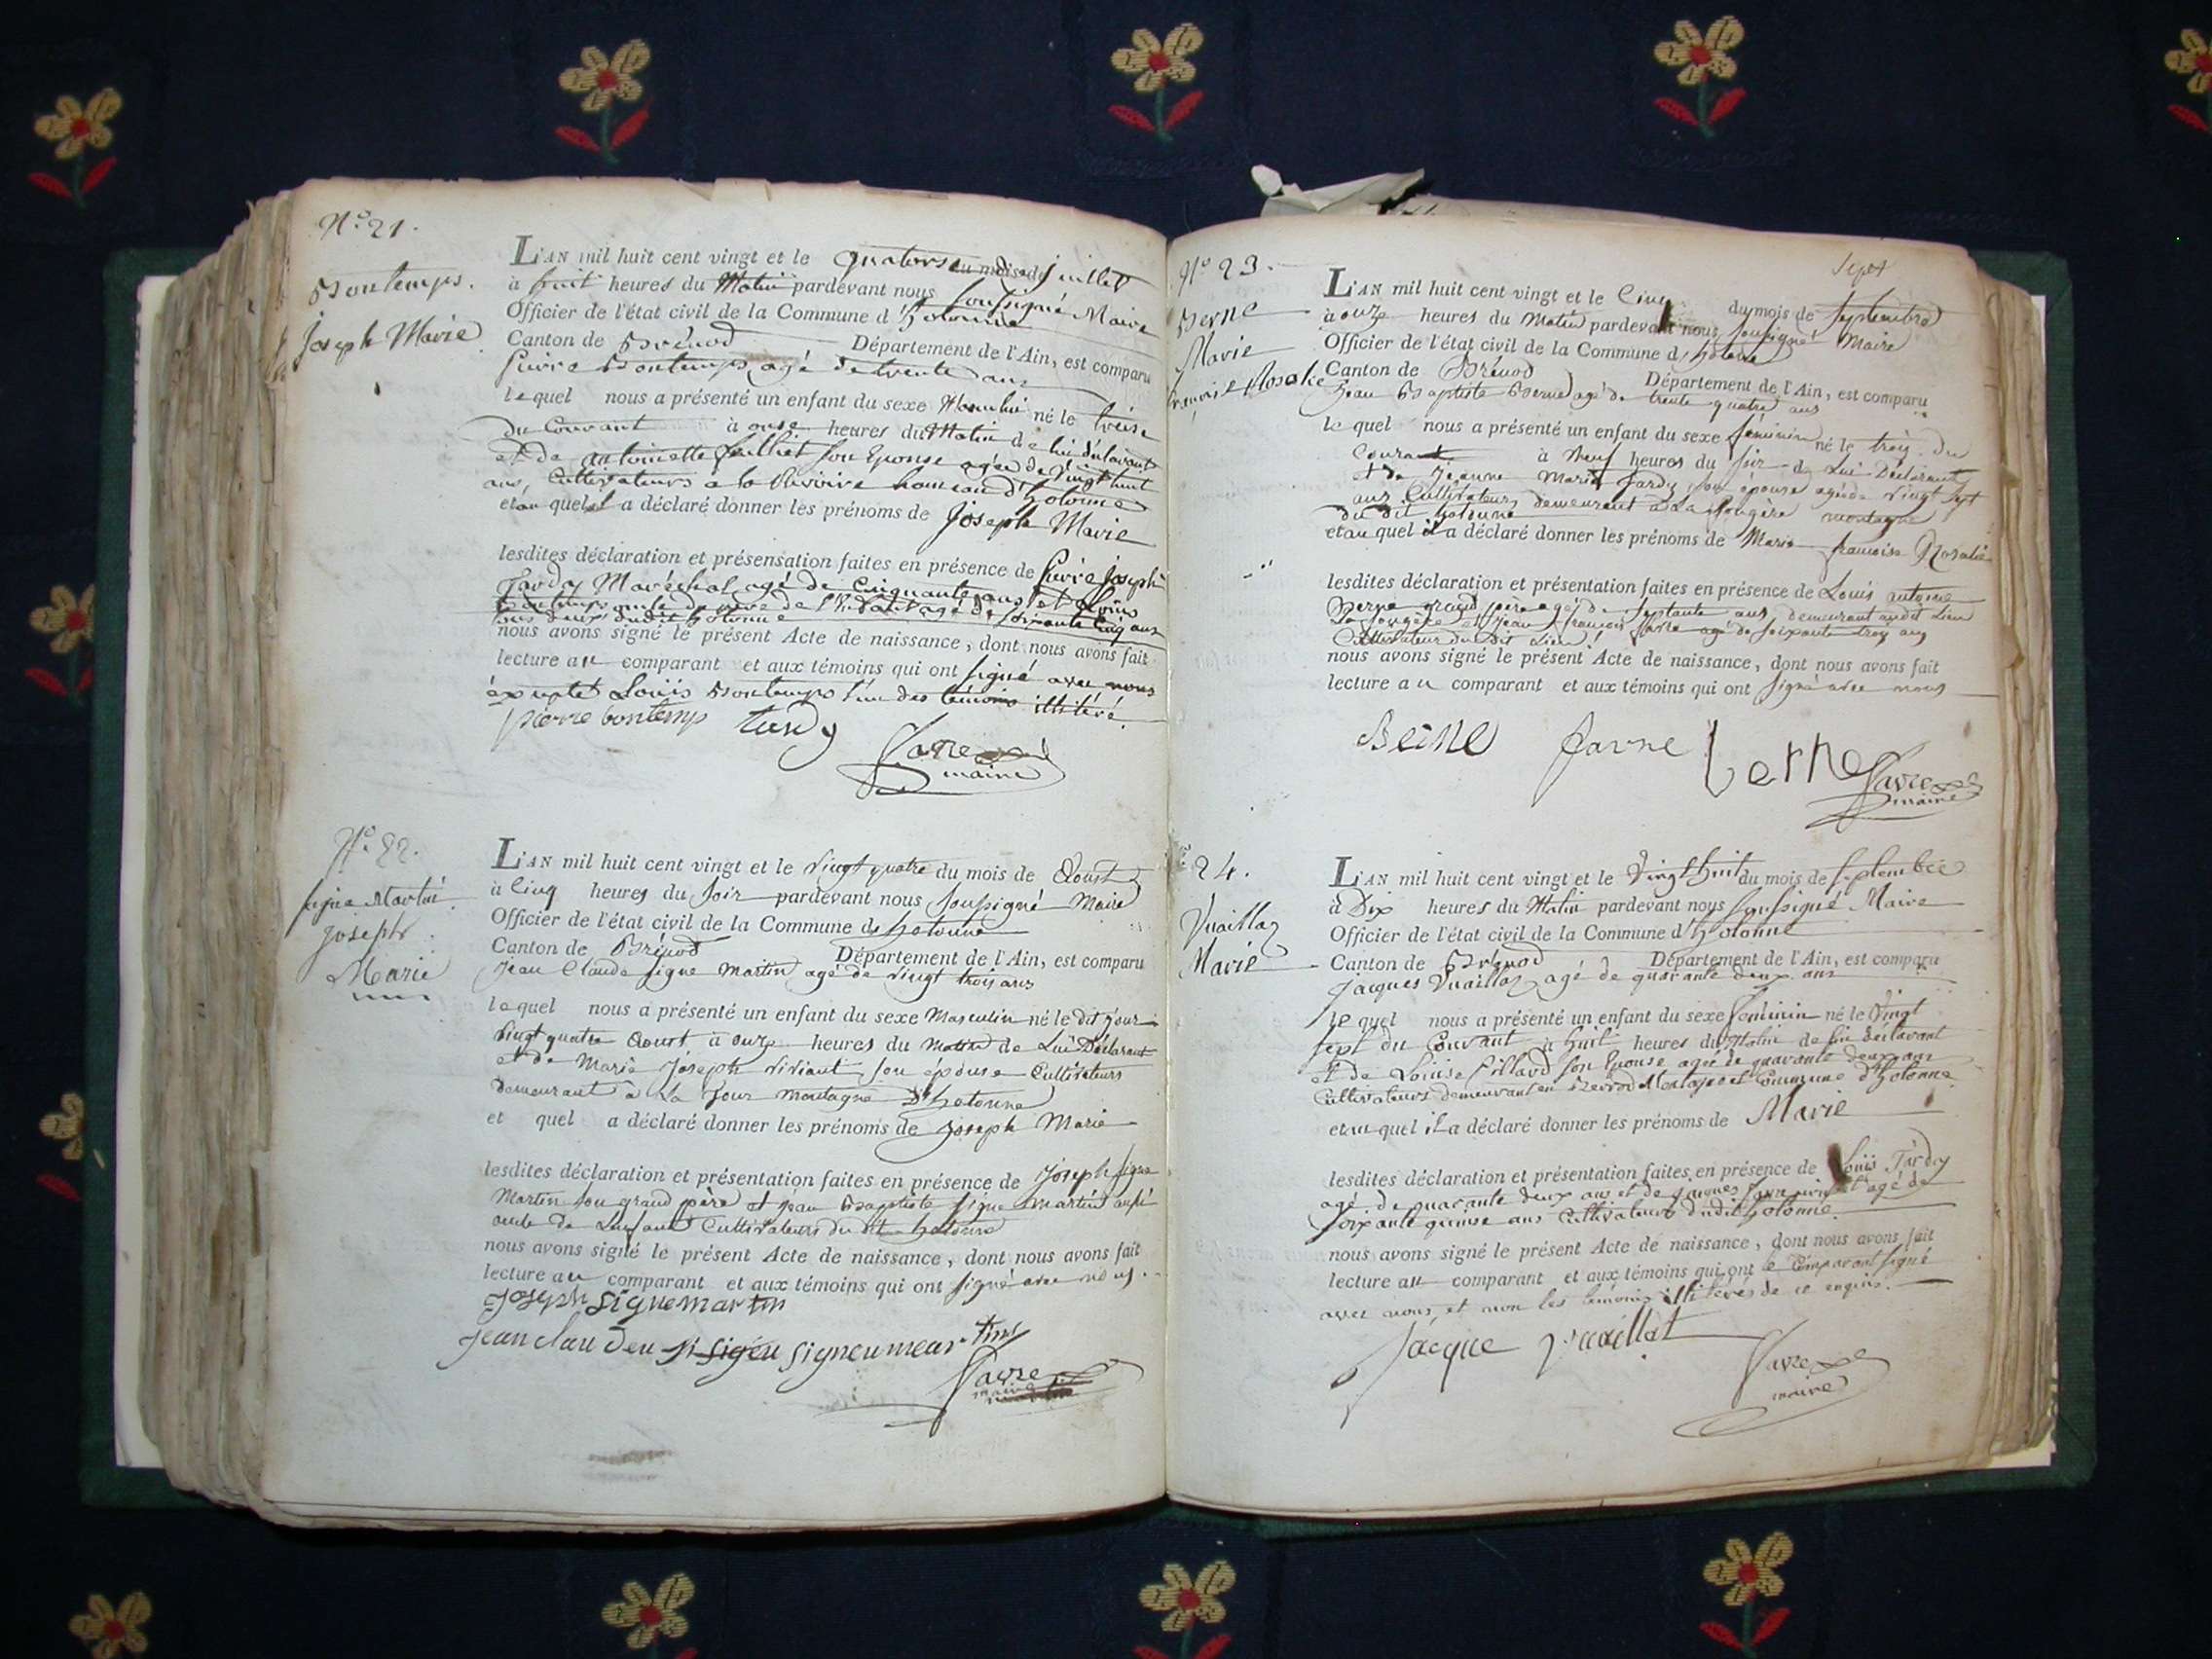 N.º 21.
Bontemps.
Joseph Marie
L'AN mil huit cent vingt et le quatorse du mois de Juillet
à huit heures du Matin pardevant nous soussigné Maire
Officier de l'état civil de la Commune d'hotonne
Canton de Brénod Département de l'Ain, est comparu
Pierre Bontemps agé de trente ans
lequel nous a présenté un enfant du sexe Masculin né le treise
du Courant à onse heures du Matin de lui déclarant
et de Antoinette Juilliet son Epouse agée de vingt huit
ans, Cultivateurs a la Riviore hameau d'hotonne
et au quel il a déclaré donner les prénoms de Joseph Marie
lesdites déclaration et présensation faites en présence de Pierre Joseph
Tardy Maréchal agé de Cinquante ans et Louis
Bontemps oncle du père de l'Enfant agé de soixante Cinq ans
tous deux dudit hotonne
nous avons signé le présent Acte de naissance, dont nous avons fait
lecture au comparant et aux témoins qui ont signé avec nous
éxcepté Louis Bontemps l'un des témoins illitéré.
pierre bontemp tardy
Favre
maire
N.º 22.
signe Martin
joseph
Marie
L'AN mil huit cent vingt et le vingt quatre du mois de Aoust
à Cinq heures du Soir pardevant nous soussigné Maire
Officier de l'état civil de la Commune de hotonne
Canton de Brénod Département de l'Ain, est comparu
Jean Claude signe Martin agé de vingt trois ans
lequel nous a présenté un enfant du sexe Masculin né le dit jour
vingt quatre Aoust à onze heures du Matin de Lui Déclarant
et de Marie Joseph Viviant son épouse Cultivateurs
demeurant a La Jour Montagne D'hotonne
et quel a déclaré donner les prénoms de Joseph Marie
lesdites déclaration et présentation faites en présence de Joseph signe
Martin son grand père et Jean Baptiste signe Martin aussi
oncle de L'enfant Cultivateurs du dit hotonne
nous avons signé le présent Acte de naissance, dont nous avons fait
lecture au comparant et aux témoins qui ont signé avec nous.
Joseph signemartin
Jean clau deu si sigéu signeu mear tins
Favre
maire
Sept
Nº 23.
Berne
Marie
francoise Rosalie
L'AN mil huit cent vingt et le Cinq du mois de Septembre
à onze heures du Matin pardevant nous soussigné Maire
Officier de l'état civil de la Commune d'hotonne
Canton de Brénod Département de l'Ain, est comparu
Jean Baptiste Berne agé de trente quatre ans
le quel nous a présenté un enfant du sexe féminin né le troix du
Courant à Neuf heures du Soir de Lui Déclarant
et de Jeanne Marie Tardy son épouse agée de vingt sept
ans Cultivateurs demeurant a La fougère montagne
du dit hotonne
et au quel il a déclaré donner les prénoms de Marie francoise Rosalie
lesdites déclaration et présentation faites en présence de Louis antoine
Berne grand père agé de septante ans demeurant audit Lieu
La fougère et Jean francois favre agé de soixante troy ans
Cultivateur du dit Lieu
nous avons signé le présent Acte de naissance, dont nous avons fait
lecture au comparant et aux témoins qui ont signé avec nous
Berne favre berne
Favre
maire
24.
Vuaillaz
Marie
L'AN mil huit cent vingt et le Vingt huit du mois de Septembre
à Dix heures du Matin pardevant nous soussigné Maire
Officier de l'état civil de la Commune d'hotonne
Canton de Brénod Département de l'Ain, est comparu
Jacques Vuaillaz agé de quarante deux ans
le quel nous a présenté un enfant du sexe féminin né le Vingt
sept du Courant à huit heures du Matin de lui déclarant
et de Louise Billard son Epouse agée de quarante deux ans
Cultivateurs demeurant en Commune d'hotonne
et au quel il a déclaré donner les prénoms de Marie
lesdites déclaration et présentation faites en présence de Louis Tardy
agé de quarante deux ans et de agé de
soixante quinse ans Cultivateurs dudit hotonne.
nous avons signé le présent Acte de naissance, dont nous avons fait
lecture au comparant et aux témoins qui ont le Comparant signé
avec nous et non les témoins illitérés de ce enquis.
Jacque vuaillat
Favre
maire